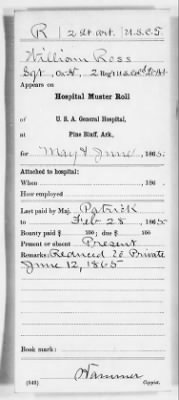 R | 2 Lt. Art. | U.S.C.T.
William Ross
Sgt, Co. H, 2 Reg't U.S. Col'd Lt. Art.
Appears on
Hospital Muster Roll
OF
U. S. A. General Hospital,
at
Pine Bluff, Ark.,
for May & June, 1865.
Attached to hospital:
When 186 .
How employed
Last paid by Maj. Patrick
to Feb 28, 1865
Bounty paid $ 100 due $ 100
Present or absent Present
Remarks: Reduced to Private
June 12, 1865
Book mark:
Hammer
(543) Copyist.